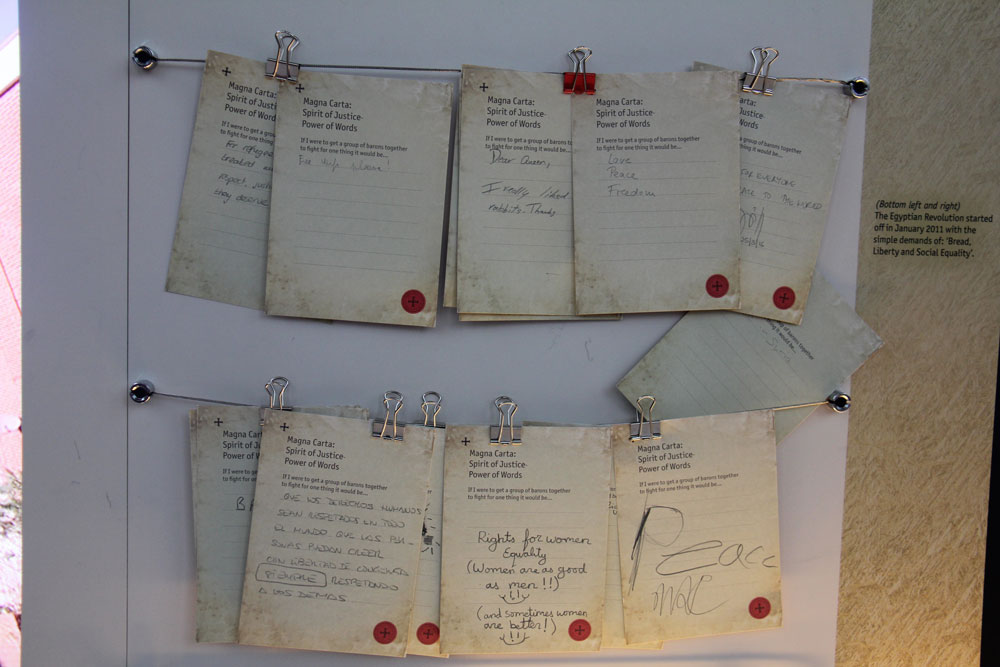 Magna Carta:
Spirit of Justi
Power of Wor
If I were to get a g
to fight for one th
For refugees
they deserve
Magna Carta:
Spirit of Justice
Power of Words
If I were to get a group of barons together
to fight for one thing it would be...
Magna Carta:
Spirit of Justice
Power of Words
If I were to get a group of barons t
to fight for one thing it would be...
Dear Queen,
I really liked
rabbits. Thanks
Magna Carta:
Spirit of Justice
Power of Words
If I were to get a group of barons together
to fight for one thing it would be...
Love
Peace
Freedom
a Carta:
of Justice
of Words
get a group of barons together
one thing it would be...
FOR EVERYONE
(Bottom left and right)
The Egyptian Revolution started
off in January 2011 with the
simple demands of: 'Bread,
Liberty and Social Equality'.
thing it would be...
Magna Car
Spirit of J
Power of W
If I were to get
to fight for on
B
Magna Carta:
Spirit of Justice
Power of Words
If I were to get a group of barons together
to fight for one thing it would be...
QUE LOS DERECHOS HUMANOS
SEAN RESPETADOS EN TODO
EL MUNDO. QUE LAS PER-
SONAS PUEDAN CREER
CON LIBERTAD DE CONCIENCIA
SIEMPRE RESPETANDO
A LOS DEMÁS
Magna Carta:
Spirit of Justice
Power of Words
If I were to get a group of barons together
to fight for one thing it would be...
Rights for women
Equality
(Women are as good
as men!!)
(and sometimes women
are better!)
Magna Carta:
Spirit of Justice
Power of Words
If I were to get a group of barons together
to fight for one thing it would be...
Peace